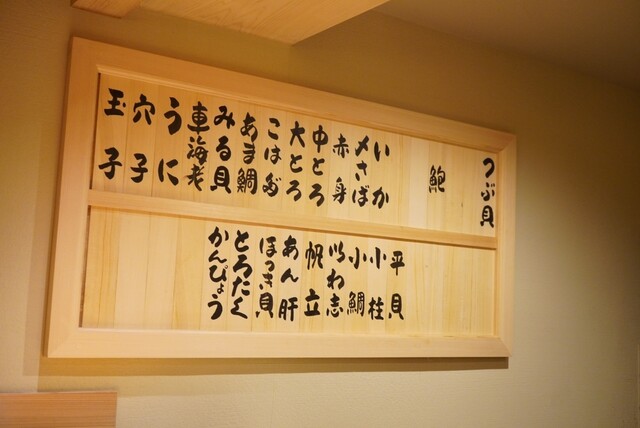 つぶ貝
鮑
いか
〆さば
赤身
中とろ
大とろ
こはだ
あま鯛
みる貝
車海老
うに
穴子
玉子
平貝
小柱
小鯛
いわ志
帆立
あん肝
ほっき貝
とろたく
かんぴょう